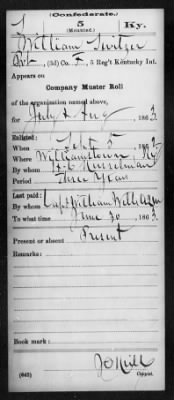 (Confederate.)
5
(Mounted.)
Ky.
William Switzer
Pvt, (3d) Co. F, 5 Reg't Kentucky Inf.
Appears on
Company Muster Roll
of the organization named above,
for July & Aug, 1863
Enlisted:
When Sept 5, 186
Where Williamstown, Ky
By whom
Period Three Years
Last paid:
By whom Capt William Wilkerson
To what time June 30, 1863
Present or absent Present
Remarks:
Book mark:
(642)
Copyist.